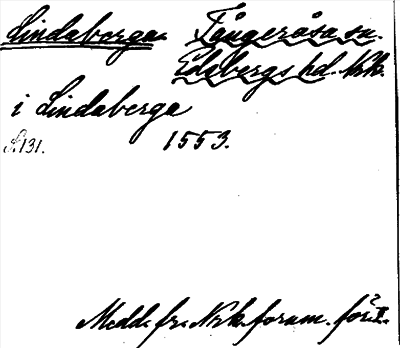 Lindaberga. Tångeråsa sn.
Edsbergs hd. Nrk.
i Lindaberga
S. 131. 1553.
Medd. fr. Nrk. fornm. för. II.